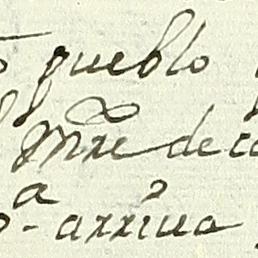 pueblo
Mre de
a
arriua